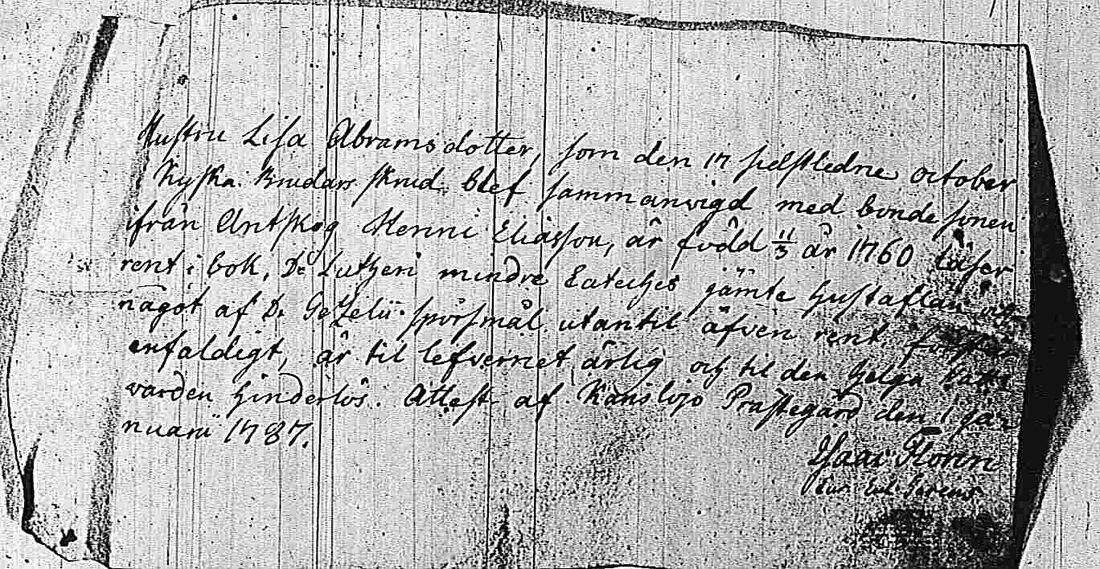 Hustru Lisa Abramsdotter, som den 17 sidstledne october
Kyska Brudars skrud blef sammanvigd med bondesonen
ifrån Antskog Henric Eliasson, är född 11/3 år 1760 läser
rent i bok, D: Lutheri mindre Cateches jämte hustaflan
något af D: Gezelii spörsmål utantil äfven rent
enfaldigt, är til lefvernet ärlig och til den helga
varden hinderlös. Attest af Karislojo Prästegård den 1 ja-
nuarii 1787.
Isaac Florin